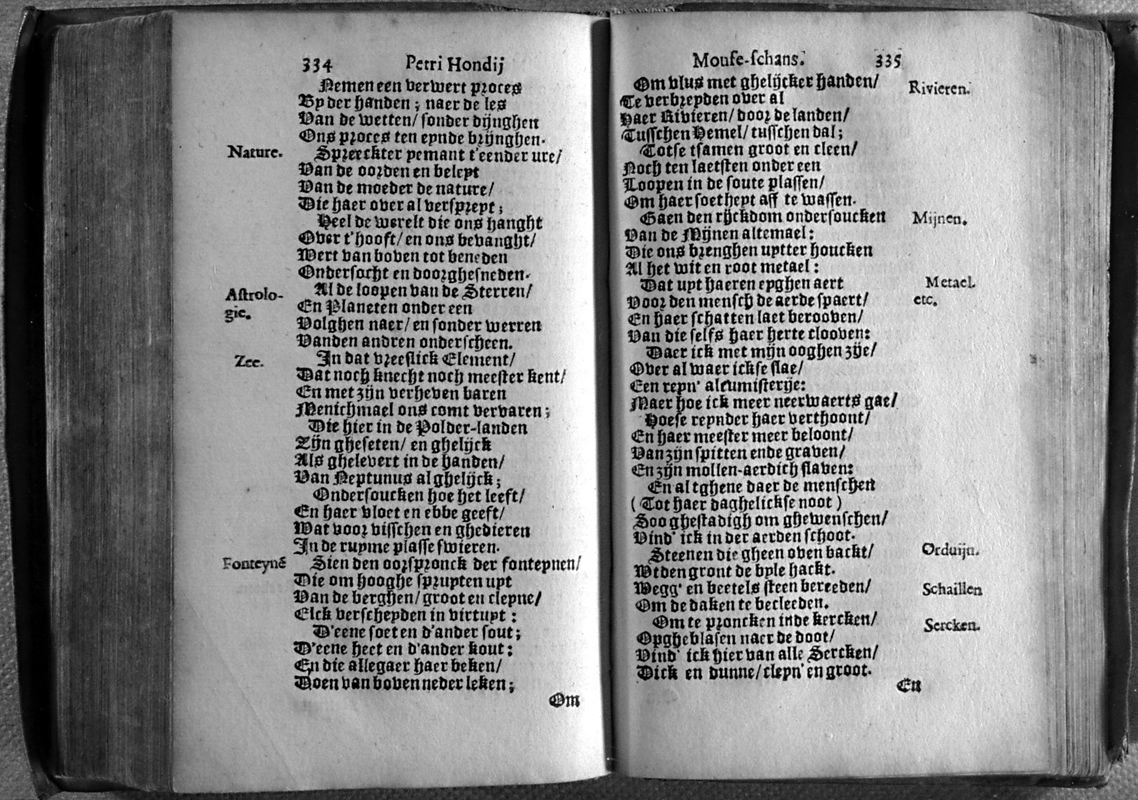 334 Petri Hondij
Nemen een verwert proces
By der handen; naer de les
Van de wetten/ sonder dijnghen
Ons proces ten eynde brijnghen.
Nature. Spreeckter yemant t'eender ure/
Van de oorden en beleyt
Van de moeder de nature/
Die haer over al verspreyt;
Heel de werelt die ons hanght
Over t'hooft/ en ons bevanght/
Wert van boven tot beneden
Ondersocht en doorghesneden.
Astrolo- Al de loopen van de Sterren/
gie. En Planeten onder een
Volghen naer/ en sonder werren
Vanden andren onderscheen.
Zee. In dat vreeslick Element/
Dat noch knecht noch meester kent/
En met zijn verheven baren
Menichmael ons comt vervaren;
Die hier in de Polder-landen
Zijn gheseten/ en ghelijck
Als ghelevert in de handen/
Van Neptunus al ghelijck;
Ondersoucken hoe het leeft/
En haer vloet en ebbe geeft/
Wat voor visschen en ghedieren
In de ruyme plasse swieren.
Fonteynē Sien den oorspronck der fonteynen/
Die om hooghe spruyten uyt
Van de berghen/ groot en cleyne/
Elck verscheyden in virtuyt:
D'eene soet en d'ander sout;
D'eene heet en d'ander kout:
En die allegaer haer beken/
Doen van boven neder leken;
Om
Mouse-schans. 335
Om vlus met ghelijcker handen/ Rivieren.
Te verbreyden over al
Haer Rivieren/ door de landen/
Tusschen Hemel/ tusschen dal;
Totse tsamen groot en cleen/
Noch ten laetsten onder een
Loopen in de soute plassen/
Om haer soetheyt aff te wassen.
Gaen den rijckdom ondersoucken Mijnen.
Van de Mijnen altemael:
Die ons brenghen uytter houcken
Al het wit en root metael:
Dat uyt haeren eyghen aert Metael.
Voor den mensch de aerde spaert/ etc.
En haer schatten laet berooven/
Van die selfs haer herte clooven:
Daer ick met mijn ooghen zije/
Over al waer ickse slae/
Een reyn' alcumisterije:
Maer hoe ick meer neerwaerts gae/
Hoese reynder haer verthoont/
En haer meester meer beloont/
Van zijn spitten ende graven/
En zijn mollen-aerdich slaven:
En al tghene daer de menschen
(Tot haer daghelickse noot)
Soo ghestadigh om ghewenschen/
Vind' ick in der aerden schoot.
Steenen die gheen oven backt/ Orduijn.
Wtden gront de byle hackt.
Wegg' en beetels steen bereeden/ Schaillen
Om de daken te becleeden.
Om te proncken inde kercken/ Sercken.
Opgheblasen naer de doot/
Vind' ick hier van alle Sercken/
Dick en dunne/ cleyn' en groot.
En